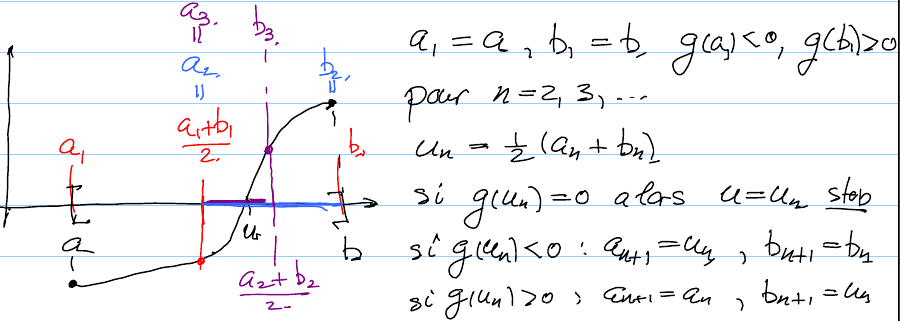 a₃. b₃.
||
a₂. b₂.
|| ||
(a₁+b₁)/2.
a₁ b₁
a u b
(a₂+b₂)/2.
a₁ = a , b₁ = b, g(a₁)<0, g(b₁)>0
pour n=2, 3, ...
uₙ = ½ (aₙ + bₙ)
si g(uₙ)=0 alors u=uₙ stop
si g(uₙ)<0 : aₙ₊₁ = uₙ , bₙ₊₁ = bₙ
si g(uₙ)>0 : aₙ₊₁ = aₙ , bₙ₊₁ = uₙ